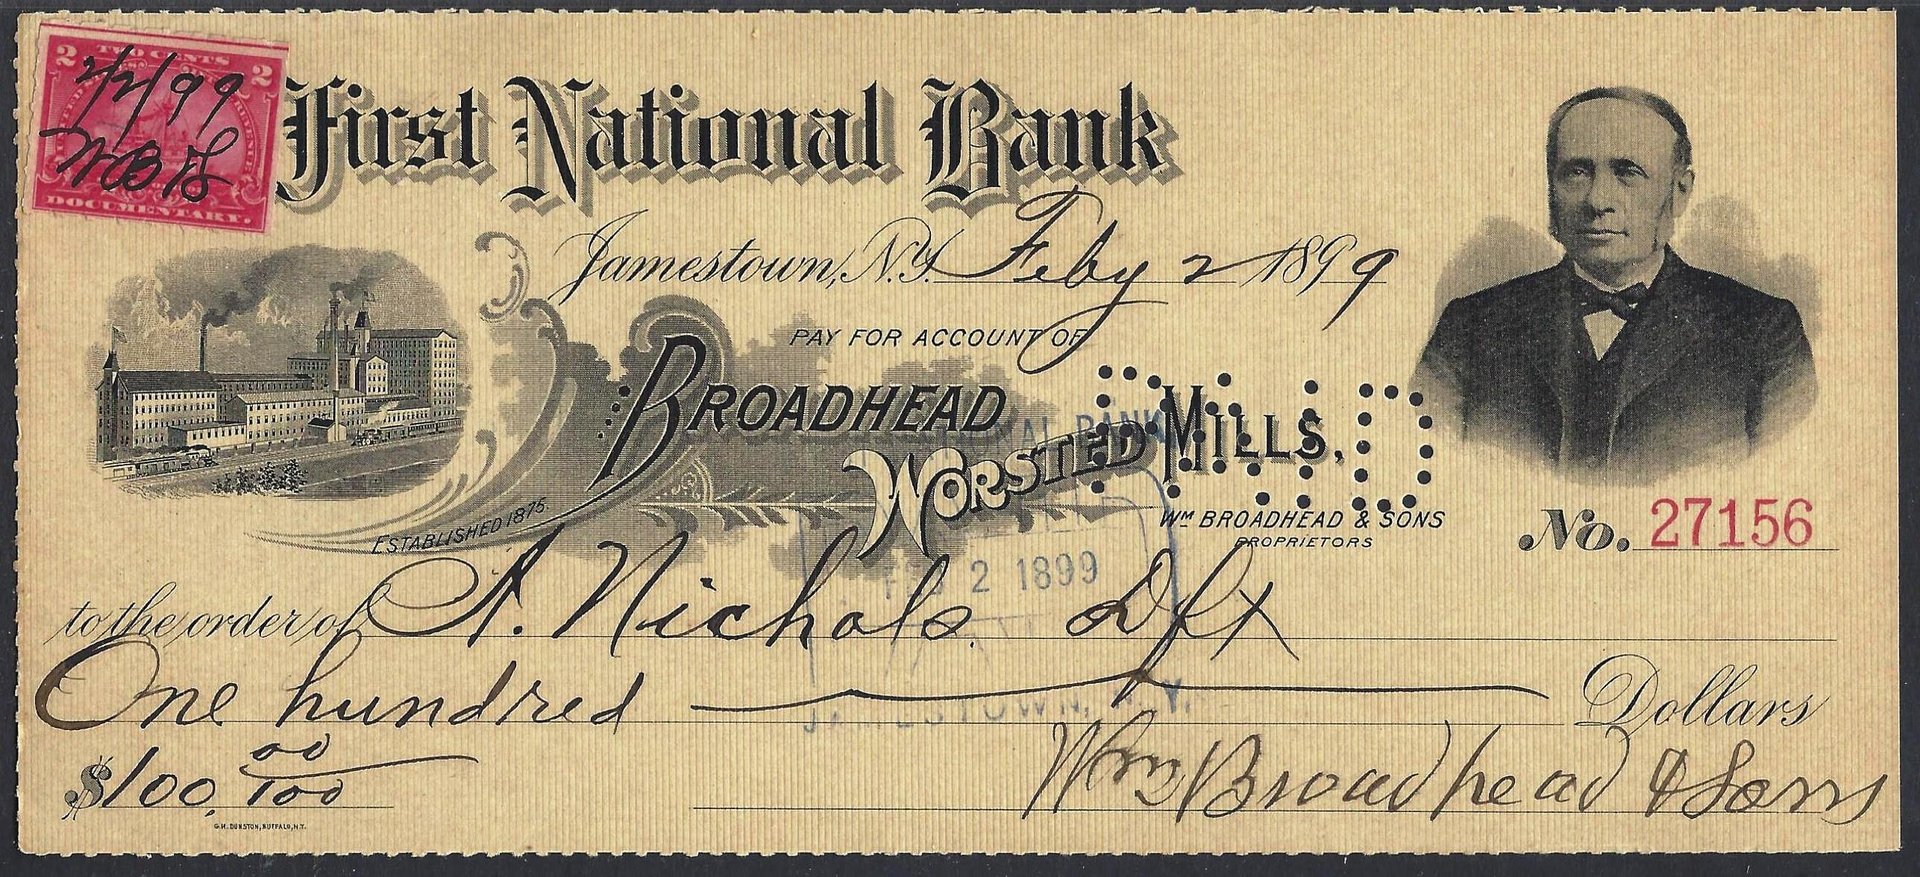 2 TWO CENTS 2
2/2/99
W B & S
DOCUMENTARY.
First National Bank
Jamestown, N.Y. Feby 2 1899
PAY FOR ACCOUNT OF
BROADHEAD
WORSTED MILLS.
PAID
ESTABLISHED 1875.
WM BROADHEAD & SONS
PROPRIETORS
No. 27156
NATIONAL BANK
FEB 2 1899
JAMESTOWN, N.Y.
to the order of A. Nichols Dft
One hundred Dollars
$100, 00/100
Wm Broadhead & Sons
G.H. DUNSTON, BUFFALO, N.Y.